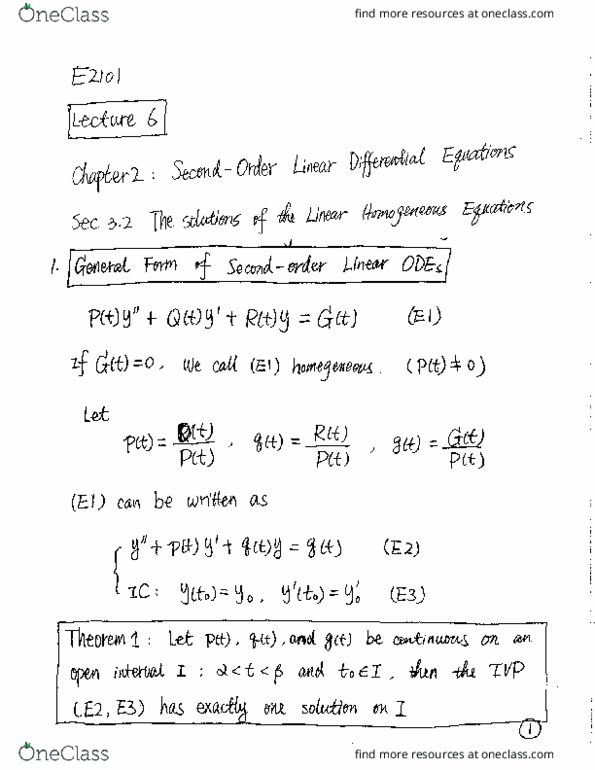 OneClass
find more resources at oneclass.com
E2101
Lecture 6
Chapter 2 : Second-Order Linear Differential Equations
Sec 3.2 The solutions of the Linear Homogeneous Equations
1. General Form of Second-order Linear ODEs
P(t)y'' + Q(t)y' + R(t)y = G(t) (E1)
If G(t)=0, We call (E1) homegeneous. (P(t)≠0)
Let
p(t) = Q(t)/P(t), q(t) = R(t)/P(t), g(t) = G(t)/P(t)
(E1) can be written as
y'' + p(t)y' + q(t)y = g(t) (E2)
IC: y(t₀)=y₀, y'(t₀)=y₀' (E3)
Theorem 1 : Let p(t), q(t), and g(t) be continuous on an
open interval I : α<t<β and t₀∈I, then the IVP
(E2, E3) has exactly one solution on I
1
OneClass
find more resources at oneclass.com